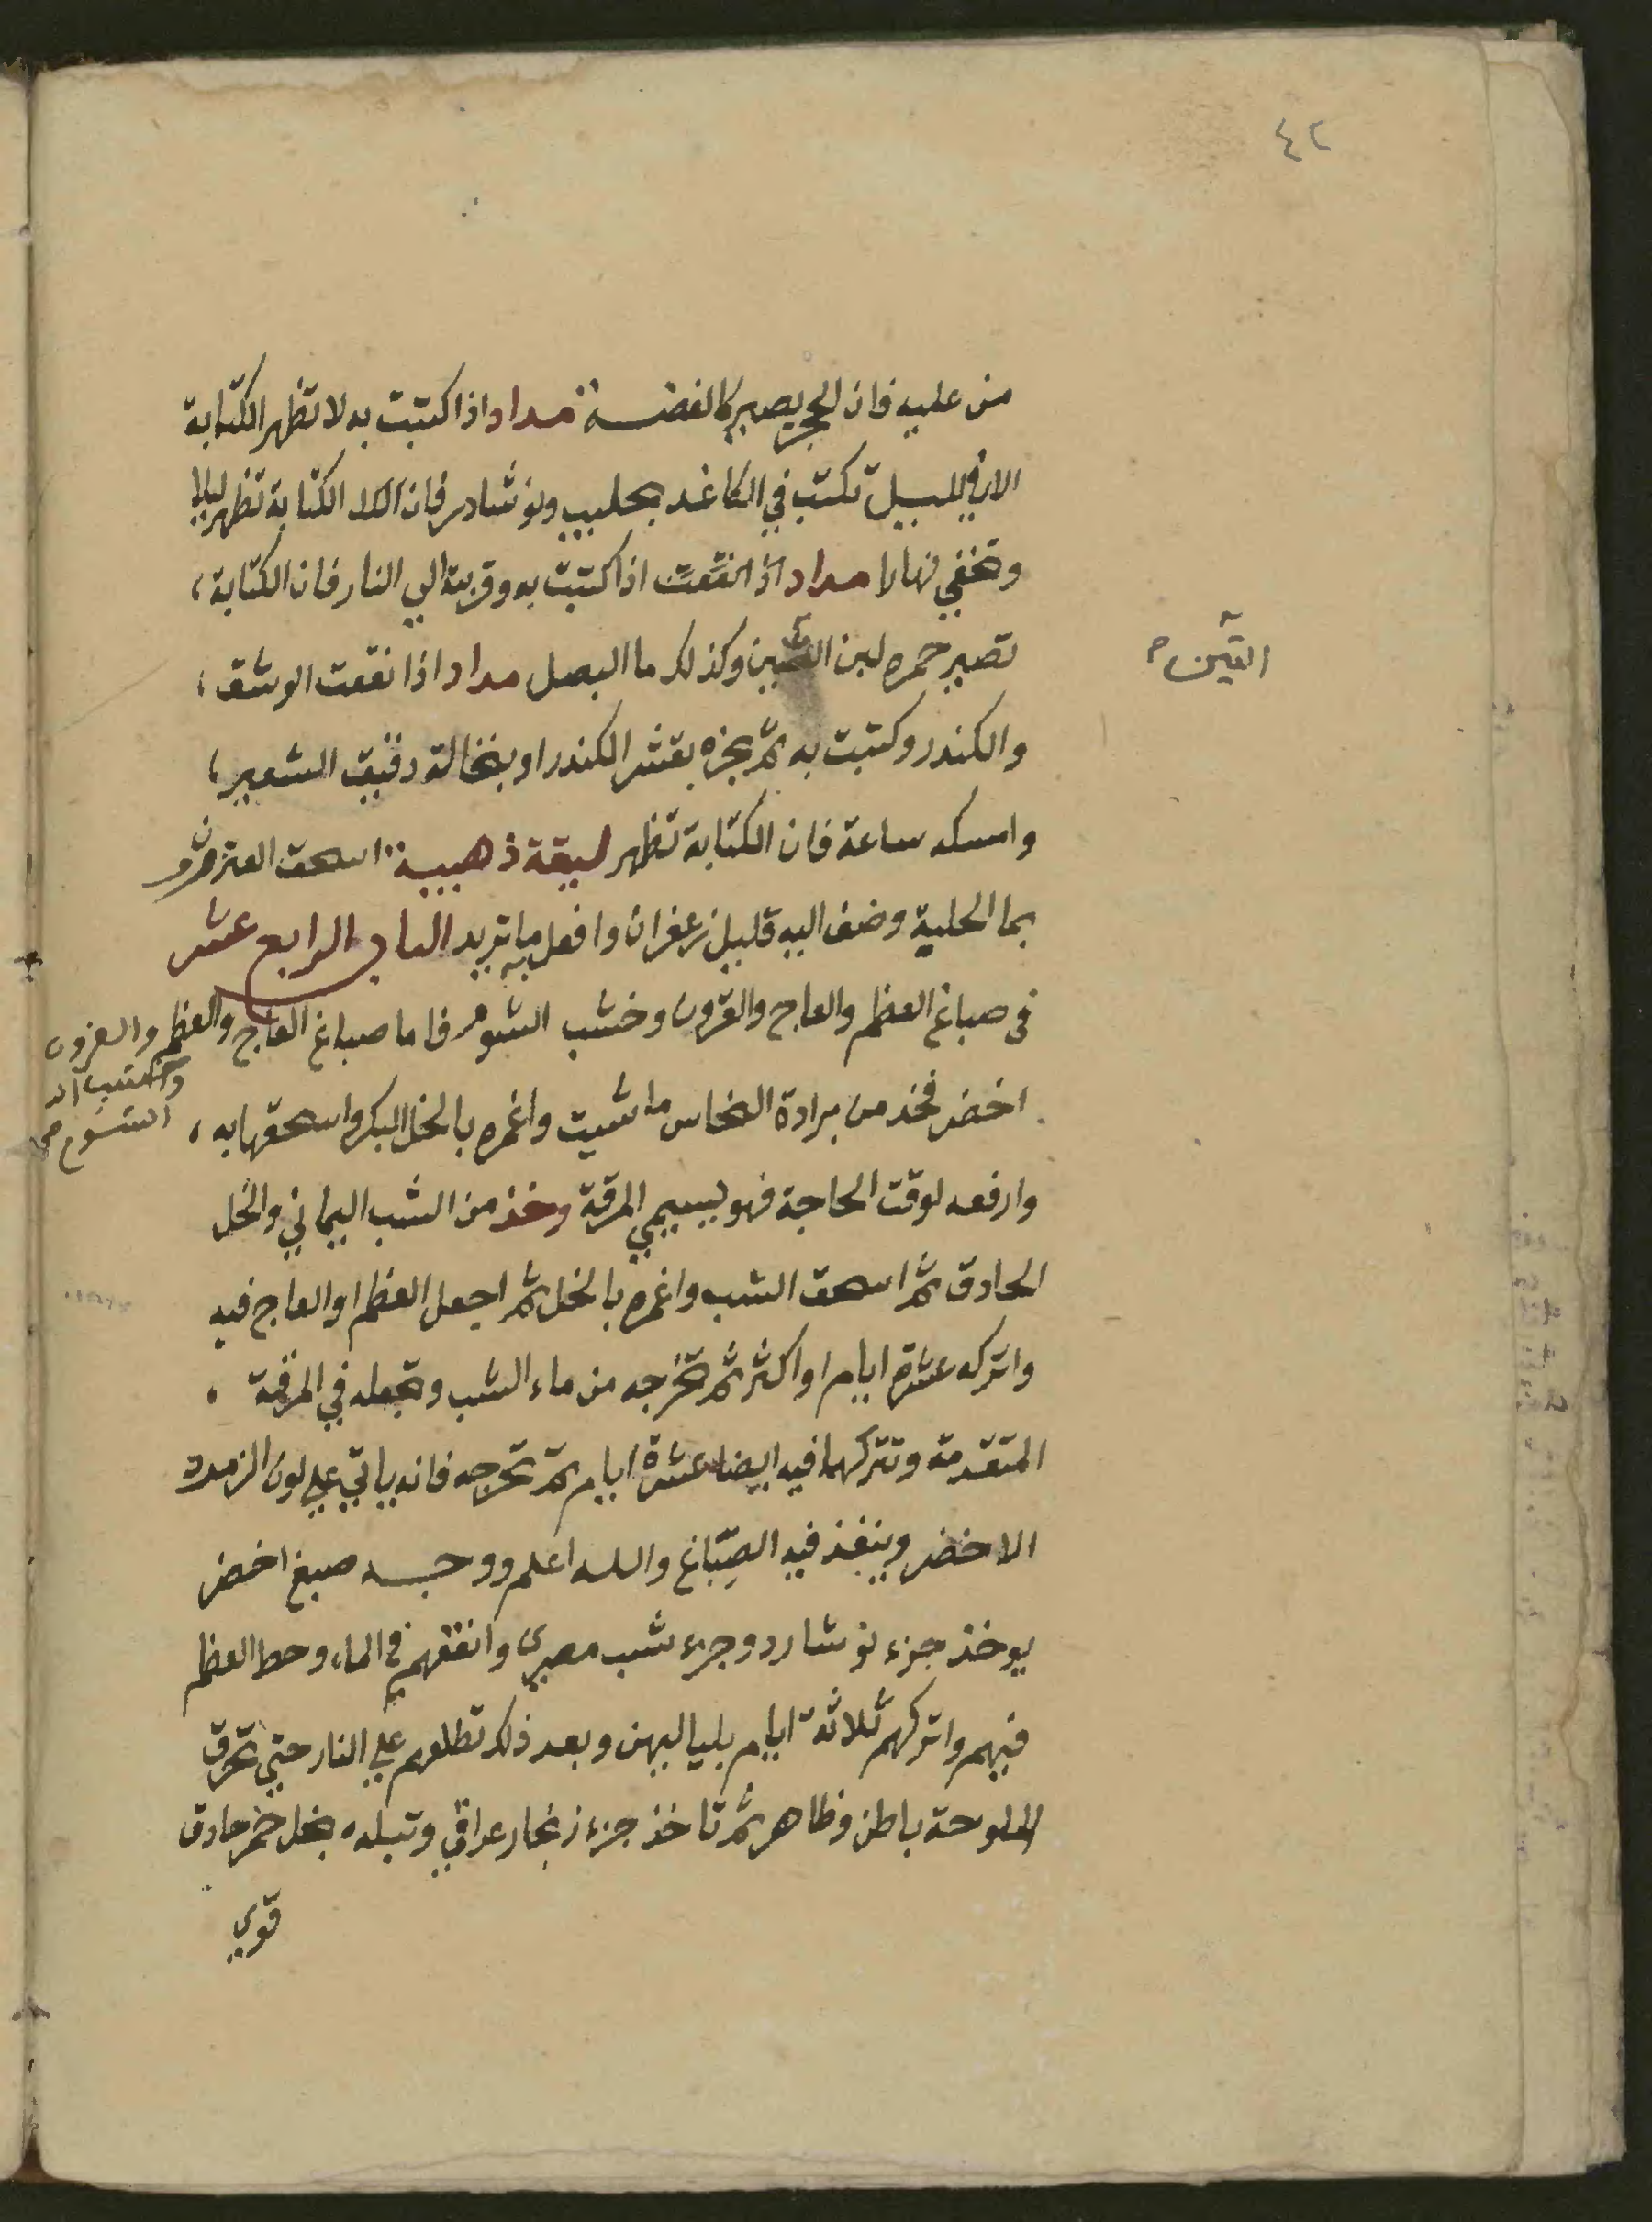 ٤٢
من عليه فان الحجر يصير كالفضة مداد اذا كتبت به لا تظهر الكتابة
الا في الليل تكتب في الكاغد بحليب ونوشادر فان الكتابة تظهر ليلا
وتخفي نهارا مداد اذا كتبت به وقربته الي النار فان الكتابة،
تصير حمره لبن التين وكذلك ما البصل مداد اذا نقعت الوشق،
التين
والكندر وكتبت به ثم بخره بقشر الكندر او بنخالة دقيق الشعير،
وامسكه ساعة فان الكتابة تظهر ليقة ذهبية اسحق العنزروت
بما الحلبة وضف اليه قليل زعفران وافعل به ما تريد الباب الرابع عشر
فى صباغ العظم والعاج والقرون وخشب الشوم فاما صباغ العاج والعظم والقرون
اخضر فخذ من برادة النحاس ما شيت واغمره بالخل البكر واسحقها به،
وارفعه لوقت الحاجة فهو يسيمي المرقة وخذ من الشب اليماني والخل
الحادق ثم اسحق الشب واغمره بالخل ثم اجعل العظم او العاج فيه
واتركه عشرة ايام او اكثر ثم تخرجه من ماء الشب وتجعله في المرقة
المتقدمة وتتركهما فيه ايضا عشرة ايام ثم تخرجه فانه ياتي علي لون الزمرد
الاخضر وينفذ فيه الصِبّاغ والله اعلم ووجه صبغ اخضر
يوخذ جزء نوشادر وجزء شب مصرى وانقعهم في الماء وحط العظم
فيهم واتركهم ثلاثة ايام بلياليهن وبعد ذلك تطلعهم علي النار حتي تحرق
الملوحة باطن وظاهر ثم تاخذ جزء زنجار عراقي وتبله بخل خمر حادق
قوي